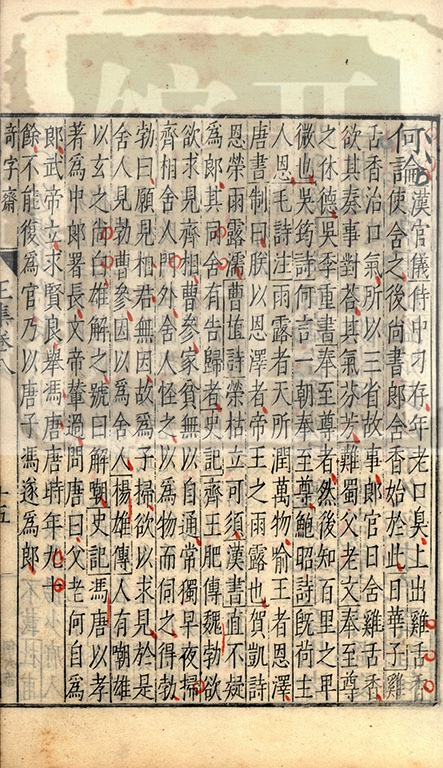 何論漢官儀侍中刁存年老口臭上出雞舌香
使含之後尚書郎含香始於此日華子雞
舌香治口氣所以三省故事郎官日含雞舌香
欲其奏事對荅其氣芬芳難蜀父老文奉至尊
之休德吳季重書奉至尊者然後知百里之卑
微也吳筠詩何言一朝奉至尊鮑昭詩旣荷主
人恩毛詩注雨露者天所潤萬物喻王者恩澤
唐書制曰朕以恩澤者帝王之雨露也賀凱詩
恩榮雨露濡曹植詩榮枯立可須漢書直不疑
爲郎其同舍有告歸者史記齊王肥傳魏勃欲
欲求見齊相曹參家貧無以自通常獨早夜掃
齊相舍人門外舍人怪之以爲物而伺之得勃
勃曰願見相君無因故爲子掃欲以求見於是
舍人見勃曹參因以爲舍人揚雄傳人有嘲雄
以玄之尚白雄解之號曰解嘲史記馮唐以孝
著爲中郎署長文帝輦過問唐曰父老何自爲
郎武帝立求賢良舉馮唐唐時年九十
餘不能復爲官乃以唐子馮遂爲郎
奇字齋
王集卷八
十五